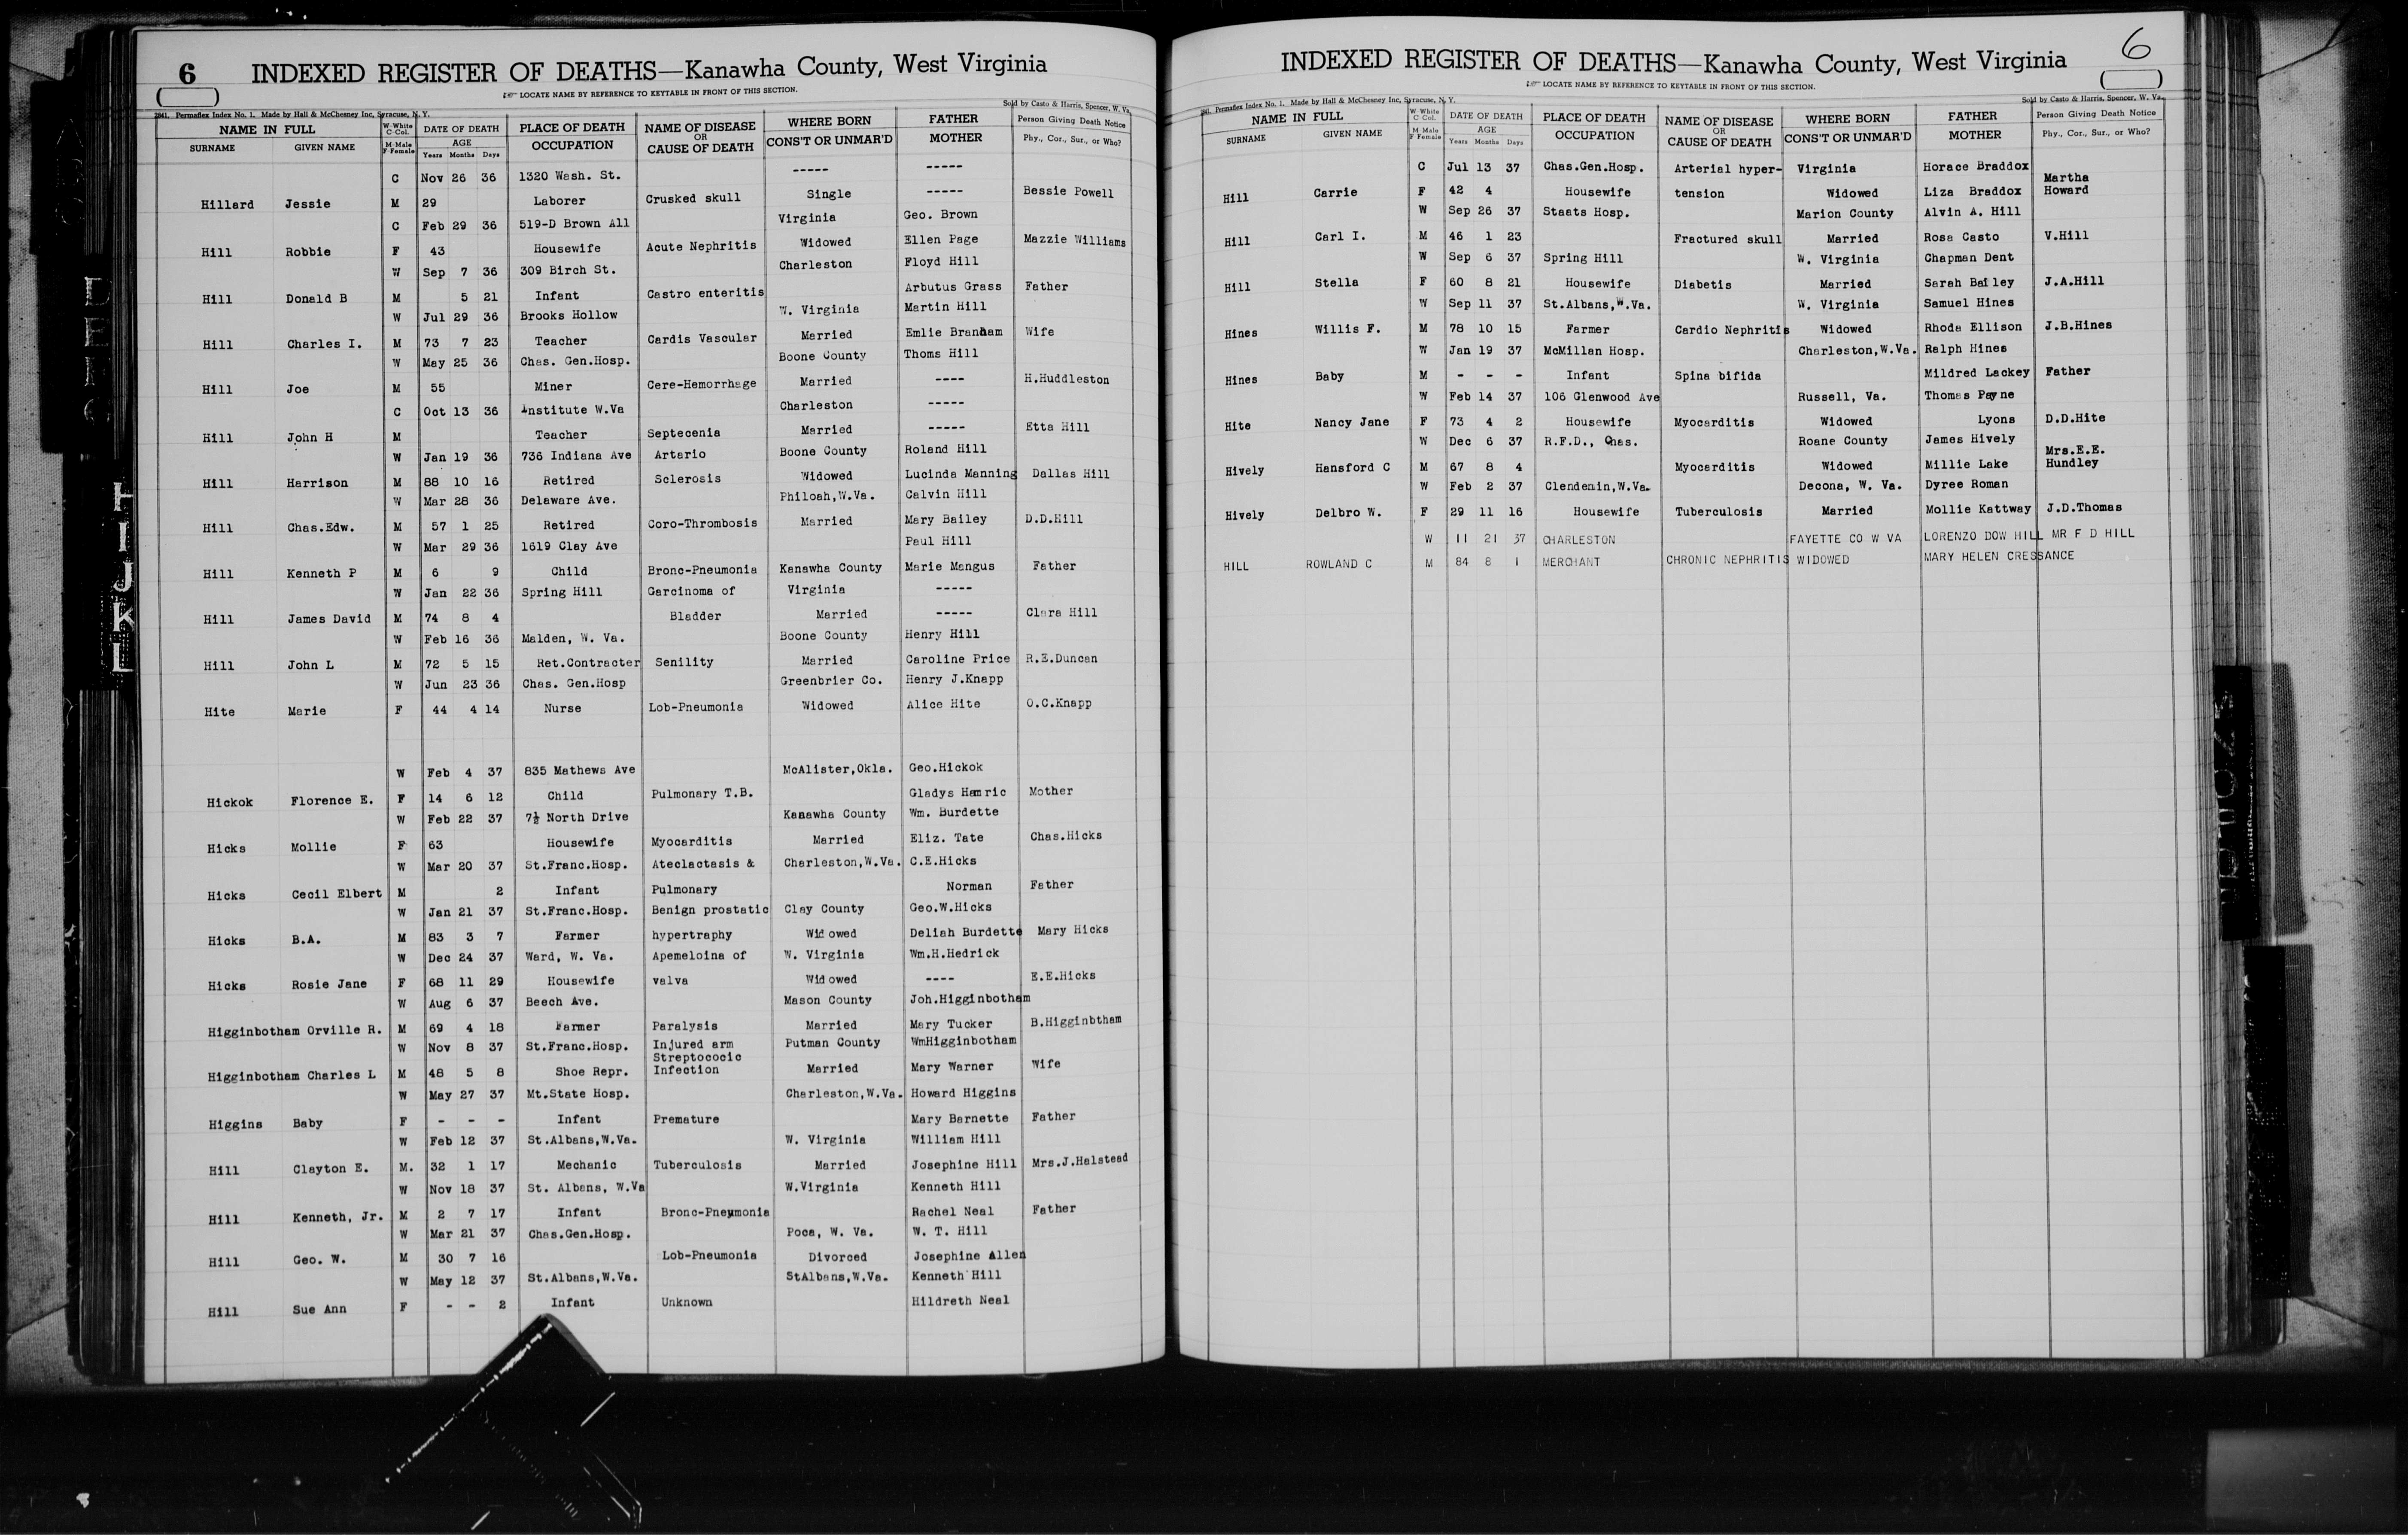 6 INDEXED REGISTER OF DEATHS—Kanawha County, West Virginia
LOCATE NAME BY REFERENCE TO KEYTABLE IN FRONT OF THIS SECTION.
2841. Permaflex Index No. 1. Made by Hall & McChesney Inc, Syracuse, N. Y. Sold by Casto & Harris, Spencer, W. Va.
NAME IN FULL W-White C-Col. DATE OF DEATH PLACE OF DEATH NAME OF DISEASE WHERE BORN FATHER Person Giving Death Notice
SURNAME GIVEN NAME M-Male F-Female AGE Years Months Days OCCUPATION OR CAUSE OF DEATH CONS'T OR UNMAR'D MOTHER Phy., Cor., Sur., or Who?
C Nov 26 36 1320 Wash. St. ----- -----
Hillard Jessie M 29 Laborer Crusked skull Single ----- Bessie Powell
C Feb 29 36 519-D Brown All Virginia Geo. Brown
Hill Robbie F 43 Housewife Acute Nephritis Widowed Ellen Page Mazzie Williams
W Sep 7 36 309 Birch St. Charleston Floyd Hill
Hill Donald B M 5 21 Infant Castro enteritis Arbutus Grass Father
W Jul 29 36 Brooks Hollow W. Virginia Martin Hill
Hill Charles I. M 73 7 23 Teacher Cardis Vascular Married Emlie Branham Wife
W May 25 36 Chas. Gen.Hosp. Boone County Thoms Hill
Hill Joe M 55 Miner Cere-Hemorrhage Married ---- H.Huddleston
C Oct 13 36 Institute W.Va Charleston -----
Hill John H M Teacher Septecenia Married ----- Etta Hill
W Jan 19 36 736 Indiana Ave Artario Boone County Roland Hill
Hill Harrison M 88 10 16 Retired Sclerosis Widowed Lucinda Manning Dallas Hill
W Mar 28 36 Delaware Ave. Philoah,W.Va. Calvin Hill
Hill Chas.Edw. M 57 1 25 Retired Coro-Thrombosis Married Mary Bailey D.D.Hill
W Mar 29 36 1619 Clay Ave Paul Hill
Hill Kenneth P M 6 9 Child Bronc-Pneumonia Kanawha County Marie Mangus Father
W Jan 22 36 Spring Hill Carcinoma of Virginia -----
Hill James David M 74 8 4 Bladder Married ----- Clara Hill
W Feb 16 36 Malden, W. Va. Boone County Henry Hill
Hill John L M 72 5 15 Ret.Contracter Senility Married Caroline Price R.E.Duncan
W Jun 23 36 Chas. Gen.Hosp Greenbrier Co. Henry J.Knapp
Hite Marie F 44 4 14 Nurse Lob-Pneumonia Widowed Alice Hite O.C.Knapp
W Feb 4 37 835 Mathews Ave McAlister,Okla. Geo.Hickok
Hickok Florence E. F 14 6 12 Child Pulmonary T.B. Gladys Hamric Mother
W Feb 22 37 7½ North Drive Kanawha County Wm. Burdette
Hicks Mollie F 63 Housewife Myocarditis Married Eliz. Tate Chas.Hicks
W Mar 20 37 St.Franc.Hosp. Ateclactasis & Charleston,W.Va. C.E.Hicks
Hicks Cecil Elbert M 2 Infant Pulmonary Norman Father
W Jan 21 37 St.Franc.Hosp. Benign prostatic Clay County Geo.W.Hicks
Hicks B.A. M 83 3 7 Farmer hypertraphy Widowed Deliah Burdette Mary Hicks
W Dec 24 37 Ward, W. Va. Apemeloina of W. Virginia Wm.H.Hedrick
Hicks Rosie Jane F 68 11 29 Housewife valva Widowed ---- E.E.Hicks
W Aug 6 37 Beech Ave. Mason County Joh.Higginbotham
Higginbotham Orville R. M 69 4 18 Farmer Paralysis Married Mary Tucker B.Higginbtham
W Nov 8 37 St.Franc.Hosp. Injured arm Putman County WmHigginbotham
Streptococic
Higginbotham Charles L M 48 5 8 Shoe Repr. Infection Married Mary Warner Wife
W May 27 37 Mt.State Hosp. Charleston,W.Va. Howard Higgins
Higgins Baby F - - - Infant Premature Mary Barnette Father
W Feb 12 37 St.Albans,W.Va. W. Virginia William Hill
Hill Clayton E. M. 32 1 17 Mechanic Tuberculosis Married Josephine Hill Mrs.J.Halstead
W Nov 18 37 St. Albans, W.Va W.Virginia Kenneth Hill
Hill Kenneth, Jr. M 2 7 17 Infant Bronc-Pneymonia Rachel Neal Father
W Mar 21 37 Chas.Gen.Hosp. Poca, W. Va. W. T. Hill
Hill Geo. W. M 30 7 16 Lob-Pneumonia Divorced Josephine Allen
W May 12 37 St.Albans,W.Va. StAlbans,W.Va. Kenneth Hill
Hill Sue Ann F - - 2 Infant Unknown Hildreth Neal
INDEXED REGISTER OF DEATHS—Kanawha County, West Virginia 6
LOCATE NAME BY REFERENCE TO KEYTABLE IN FRONT OF THIS SECTION.
2841. Permaflex Index No. 1. Made by Hall & McChesney Inc, Syracuse, N. Y. Sold by Casto & Harris, Spencer, W. Va.
NAME IN FULL W-White C Col. DATE OF DEATH PLACE OF DEATH NAME OF DISEASE WHERE BORN FATHER Person Giving Death Notice
SURNAME GIVEN NAME M Male F Female AGE Years Months Days OCCUPATION OR CAUSE OF DEATH CONS'T OR UNMAR'D MOTHER Phy., Cor., Sur., or Who?
C Jul 13 37 Chas.Gen.Hosp. Arterial hyper- Virginia Horace Braddox
Martha
Hill Carrie F 42 4 Housewife tension Widowed Liza Braddox Howard
W Sep 26 37 Staats Hosp. Marion County Alvin A. Hill
Hill Carl I. M 46 1 23 Fractured skull Married Rosa Casto V.Hill
W Sep 6 37 Spring Hill W. Virginia Chapman Dent
Hill Stella F 60 8 21 Housewife Diabetis Married Sarah Bailey J.A.Hill
W Sep 11 37 St.Albans,W.Va. W. Virginia Samuel Hines
Hines Willis F. M 78 10 15 Farmer Cardio Nephritis Widowed Rhoda Ellison J.B.Hines
W Jan 19 37 McMillan Hosp. Charleston,W.Va. Ralph Hines
Hines Baby M - - - Infant Spina bifida Mildred Lackey Father
W Feb 14 37 106 Glenwood Ave Russell, Va. Thomas Payne
Hite Nancy Jane F 73 4 2 Housewife Myocarditis Widowed Lyons D.D.Hite
W Dec 6 37 R.F.D., Chas. Roane County James Hively
Mrs.E.E.
Hively Hansford C M 67 8 4 Myocarditis Widowed Millie Lake Hundley
W Feb 2 37 Clendenin,W.Va. Decona, W. Va. Dyree Roman
Hively Delbro W. F 29 11 16 Housewife Tuberculosis Married Mollie Kattway J.D.Thomas
W 11 21 37 CHARLESTON FAYETTE CO W VA LORENZO DOW HILL MR F D HILL
HILL ROWLAND C M 84 8 1 MERCHANT CHRONIC NEPHRITIS WIDOWED MARY HELEN CRESSANCE
H
I
J
K
L